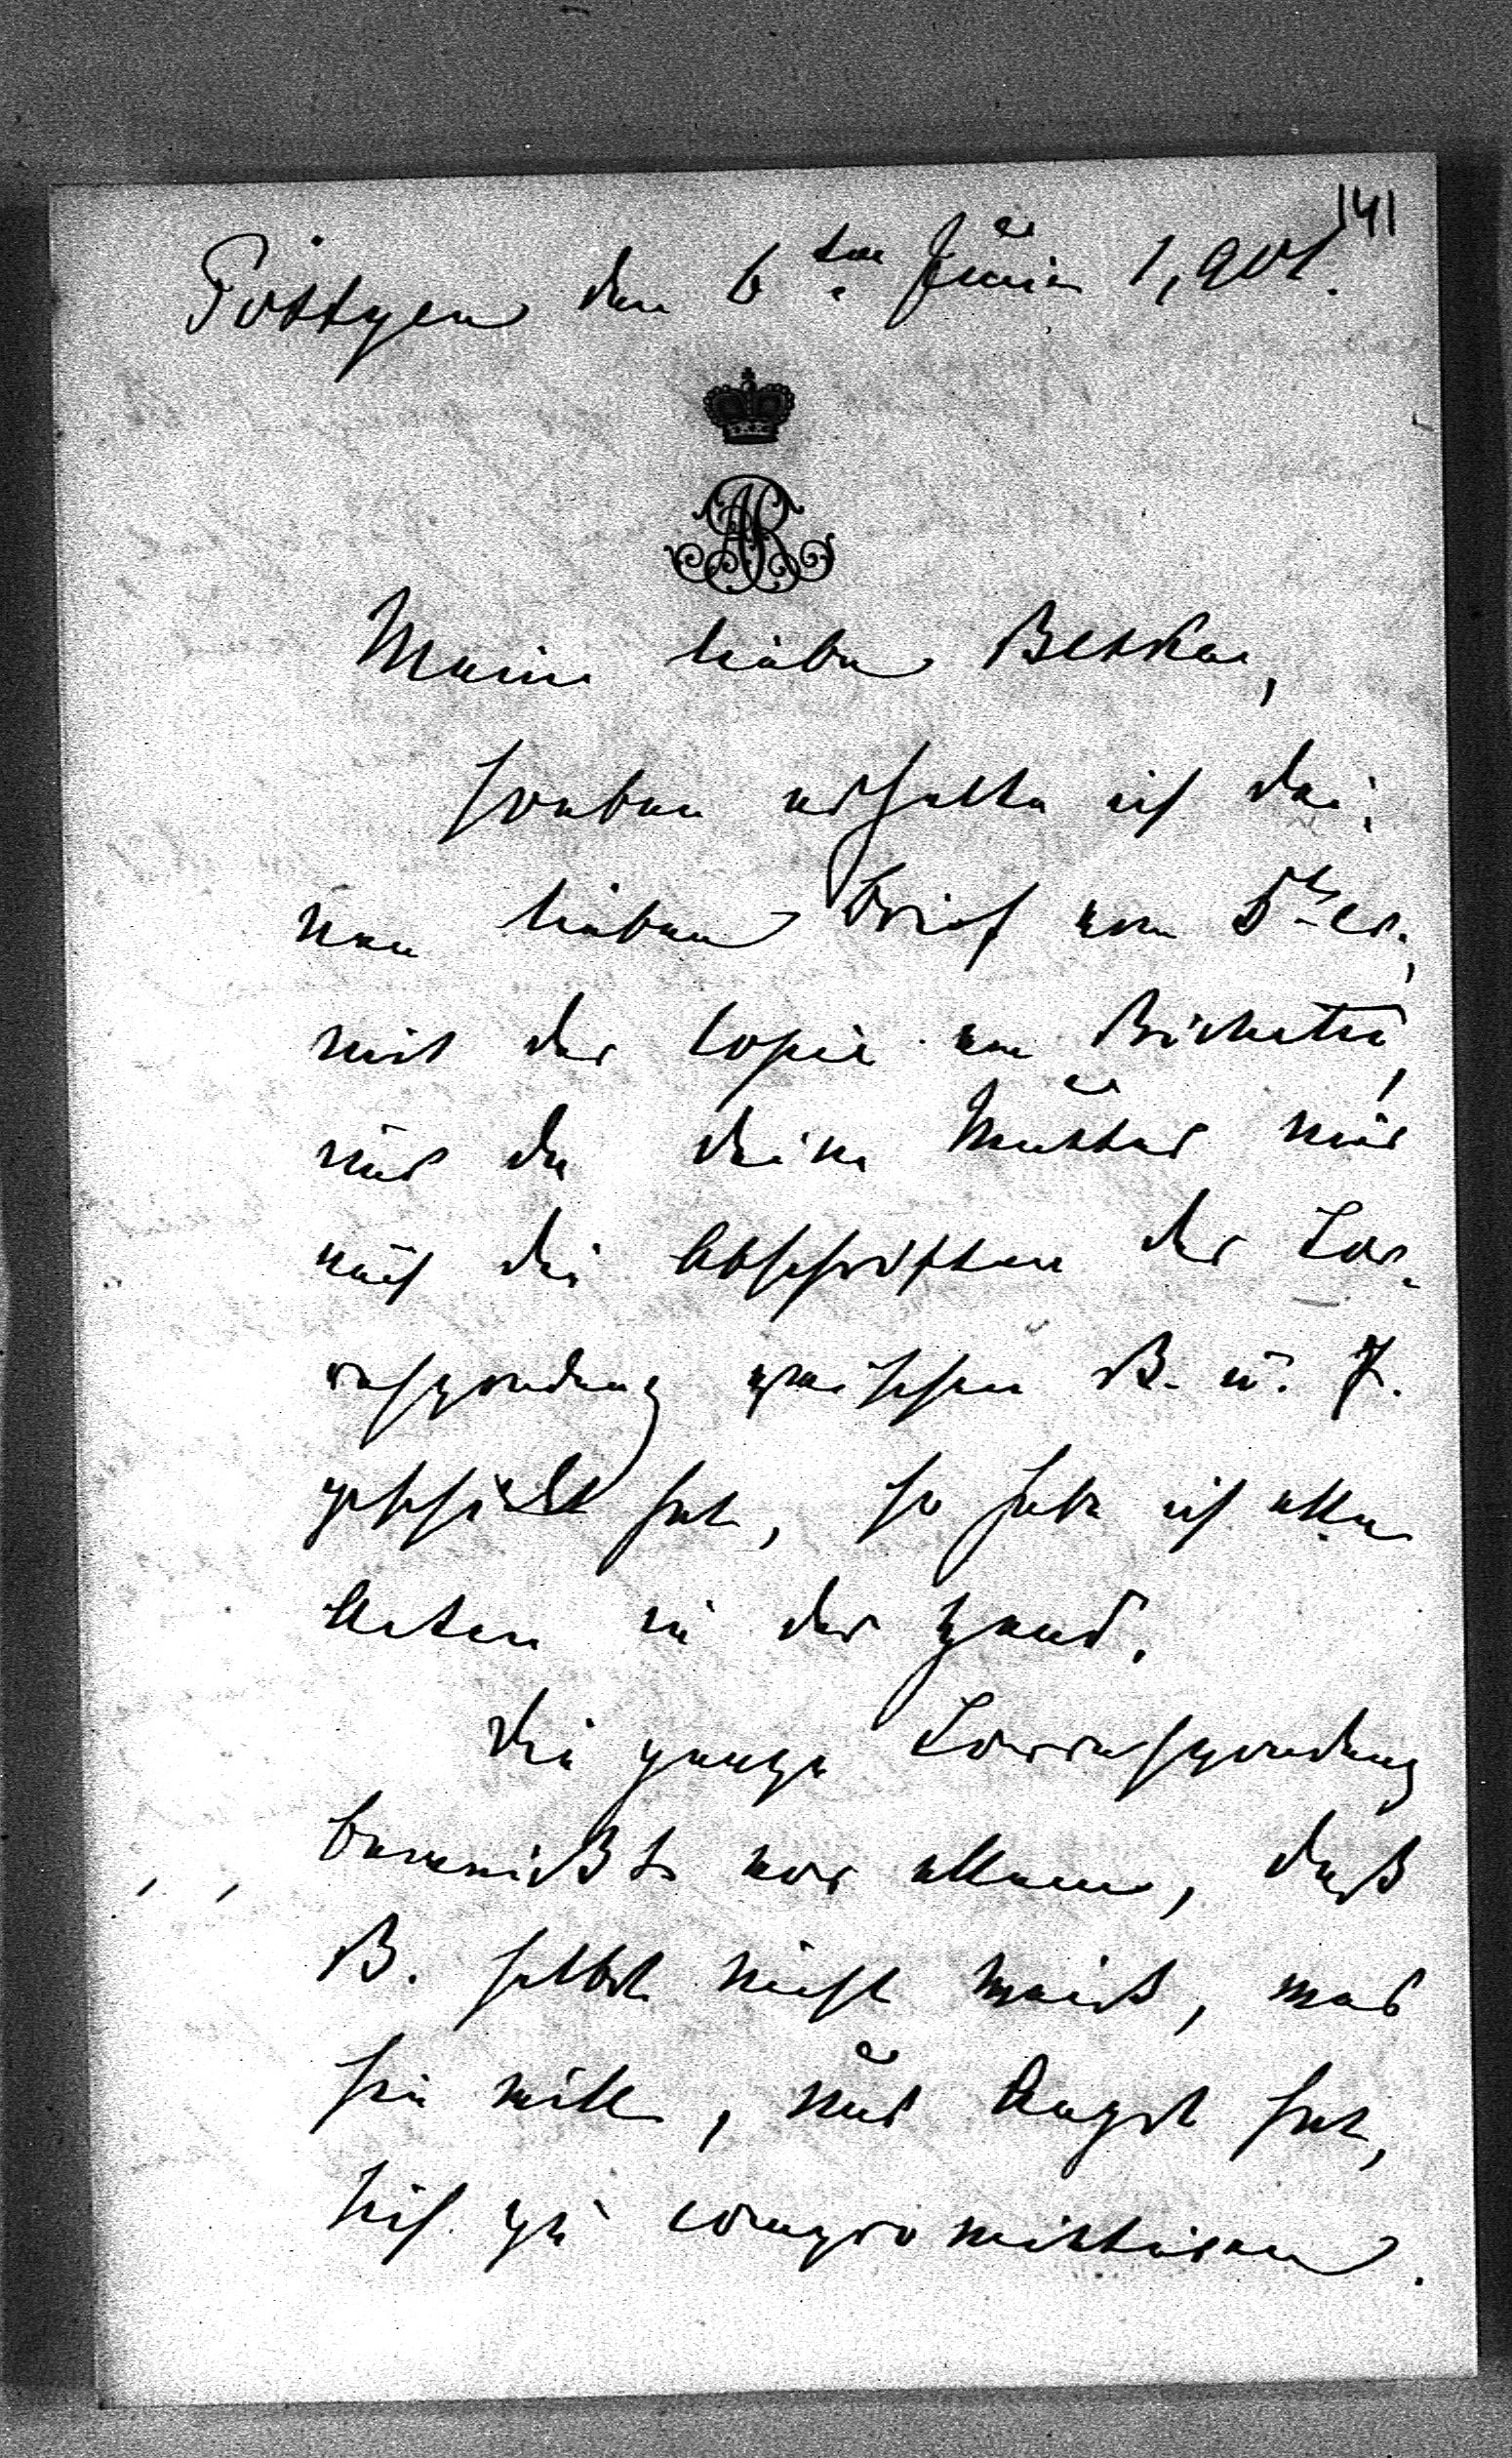 141
Göttgen den 6ten Juni 1,901.
AR
Meine liebe Bettka,
soeben erhalte ich dei-
nen lieben Brief vom 5ts cr.,
mit der Copie von
und da deine Mutter mir
auch die Abschriften der Cor-
respondenz zwischen B. u. F.
geschickt hat, so habe ich alle
Acten in der Hand.
Die ganze Correspondenz
beweißt vor allem, daß
B. selbst nicht weiß, was
sie will, und Angst hat,
sich zu compromittiren.